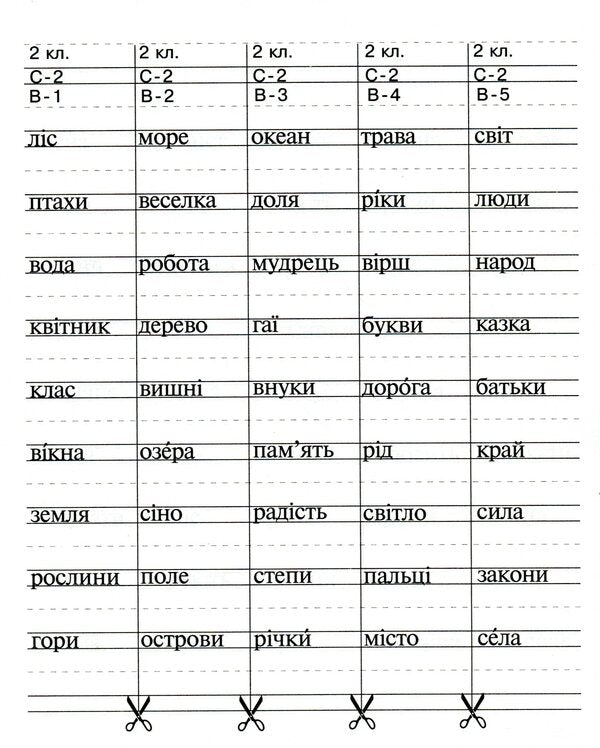 2 кл. 2 кл. 2 кл. 2 кл. 2 кл.
С-2 С-2 С-2 С-2 С-2
В-1 В-2 В-3 В-4 В-5
ліс море океан трава світ
птахи веселка доля рі́ки люди
вода робота мудрець вірш народ
квітник дерево гаї букви казка
клас вишні внуки доро́га батьки
ві́кна озе́ра пам’ять рід край
земля сіно радість світло сила
рослини поле степи пальці закони
гори острови річки́ місто се́ла